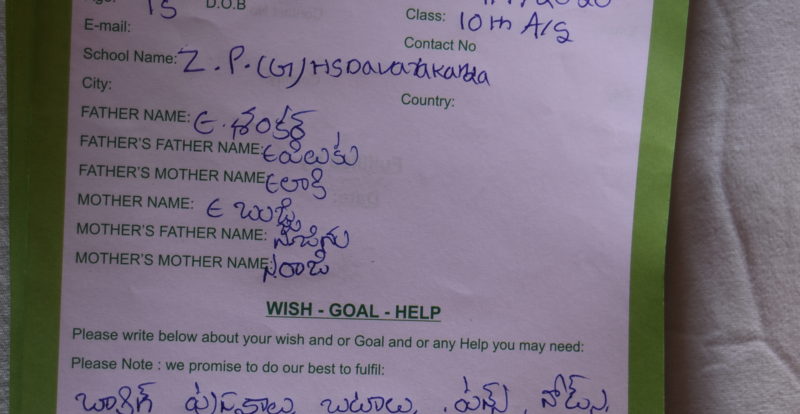 Age: 15 D.O.B
E-mail: Class: 10th A/S
School Name: Z.P.(G)HS Davarakonda Contact No
City: Country:
FATHER NAME: E. శంకర్
FATHER'S FATHER NAME: E పిలుకు
FATHER'S MOTHER NAME E లాక్రి
MOTHER NAME: E బుజ్జి
MOTHER'S FATHER NAME:
MOTHER'S MOTHER NAME: సరాజి
WISH - GOAL - HELP
Please write below about your wish and or Goal and or any Help you may need:
Please Note : we promise to do our best to fulfil:
పుస్తకాలు, బటాలు, పెన్స్, నోట్స్,